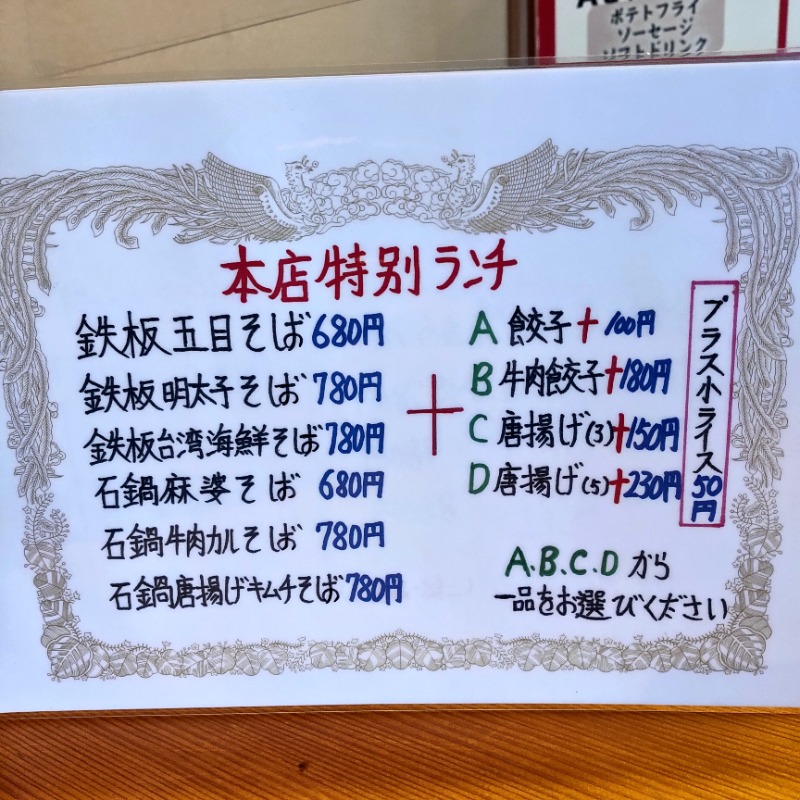 ポテトフライ
ソーセージ
ソフトドリンク
本店特別ランチ
鉄板五目そば 680円
鉄板明太子そば 780円
鉄板台湾海鮮そば 780円
石鍋麻婆そば 680円
石鍋牛肉カルそば 780円
石鍋唐揚げキムチそば 780円
+
A 餃子 + 100円
B 牛肉餃子 + 180円
C 唐揚げ(3) + 150円
D 唐揚げ(5) + 230円
プラス小ライス50円
A.B.C.D から
一品をお選びください